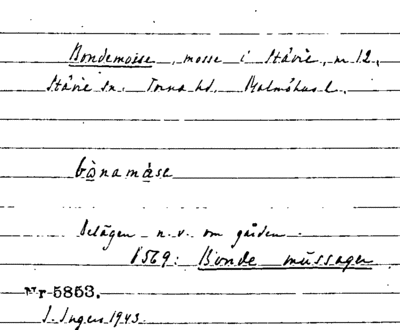 Bondemosse, mosse i Stävie, nr 12,
Stävie sn. Torna hd. Malmöhus l.
bònamåse
Belägen n.v. om gården.
1569: Bonde mússager
Nr 5853.
I. Ingers 1943.